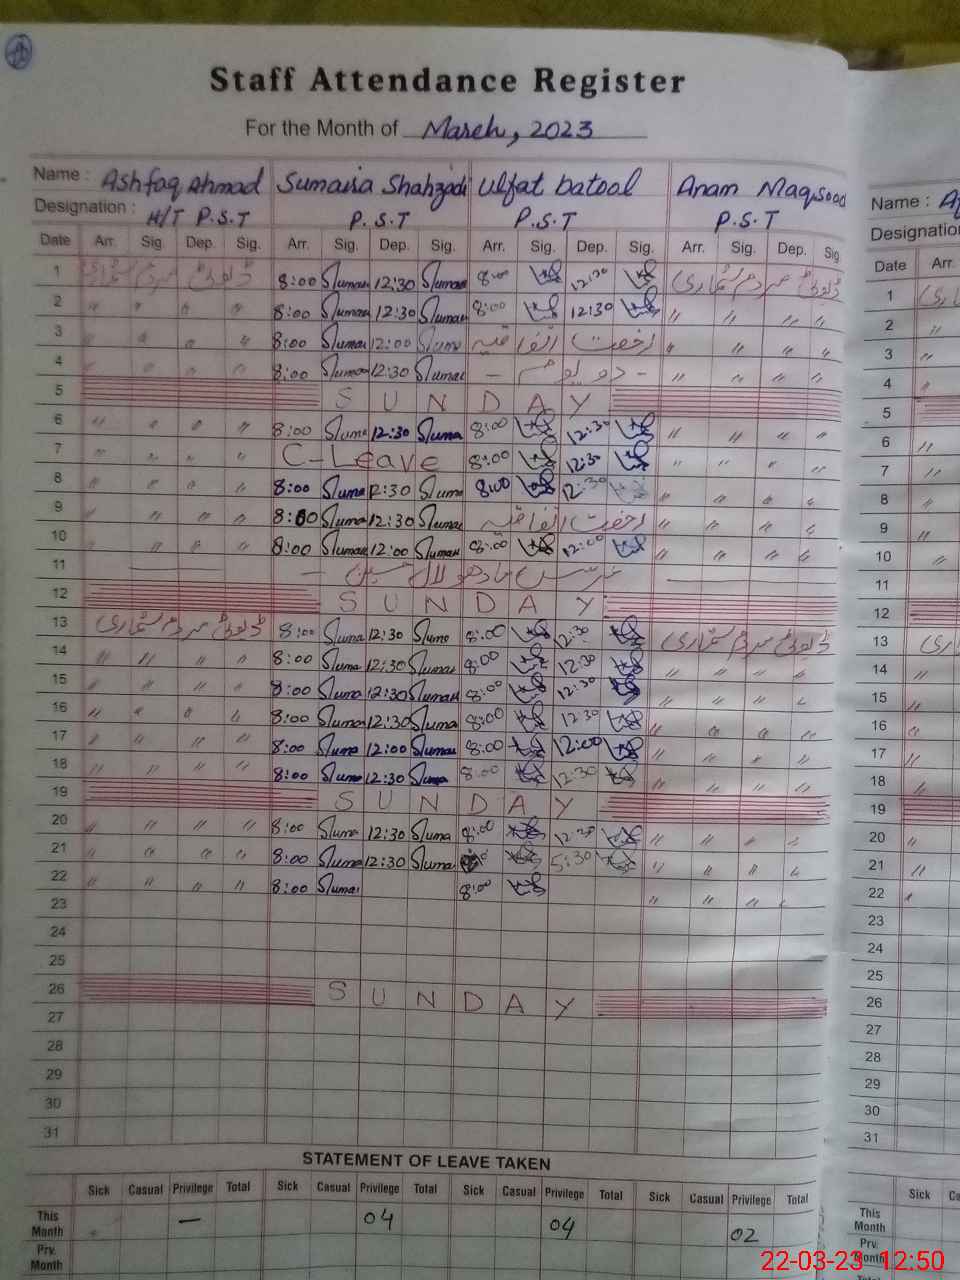 Staff Attendance Register
For the Month of March, 2023
Name : Ashfaq Ahmad Sumaira Shahzadi Ulfat batool Anam Maqsood Name :
Designation : H/T P.S.T P.S.T P.S.T P.S.T Designation
Date Arr. Sig. Dep. Sig. Arr. Sig. Dep. Sig. Arr. Sig. Dep. Sig. Arr. Sig. Dep. Sig Date Arr.
1 ڈیوٹی مردم شماری 8:00 Suma 12:30 Suma 8:00 12:30 ڈیوٹی مردم شماری 1
2 " " " " 8:00 Suma 12:30 Suma 8:00 12:30 " " " " 2 "
3 " " " " 8:00 Suma 12:00 Suma رخصت اتفاقیہ " " " " 3 "
4 " " " " 8:00 Suma 12:30 Suma - دو یوم - " " " " 4 "
5 SUNDAY 5
6 " " " " 8:00 Suma 12:30 Suma 8:00 12:30 " " " " 6 "
7 " " " " C-Leave 8:00 12:30 " " " " 7 "
8 " " " " 8:00 Suma 12:30 Suma 8:00 12:30 " " " " 8 "
9 " " " " 8:00 Suma 12:30 Suma رخصت اتفاقیہ " " " " 9 "
10 " " " " 8:00 Suma 12:00 Suma 8:00 12:00 " " " " 10 "
11 عرس مادھو لال حسین 11
12 SUNDAY 12
13 ڈیوٹی مردم شماری 8:00 Suma 12:30 Suma 8:00 12:30 ڈیوٹی مردم شماری 13
14 " " " " 8:00 Suma 12:30 Suma 8:00 12:30 " " " " 14 "
15 " " " " 8:00 Suma 12:30 Suma 8:00 12:30 " " " " 15 "
16 " " " " 8:00 Suma 12:30 Suma 8:00 12:30 " " " " 16 "
17 " " " " 8:00 Suma 12:00 Suma 8:00 12:00 " " " " 17 "
18 " " " " 8:00 Suma 12:30 Suma 8:00 12:30 " " " " 18 "
19 SUNDAY 19
20 " " " " 8:00 Suma 12:30 Suma 8:00 12:30 " " " " 20 "
21 " " " " 8:00 Suma 12:30 Suma 5:30 " " " " 21 "
22 " " " " 8:00 Suma 8:00 " " " " 22 "
23 23
24 24
25 25
26 SUNDAY 26
27 27
28 28
29 29
30 30
31 31
STATEMENT OF LEAVE TAKEN
Sick Casual Privilege Total Sick Casual Privilege Total Sick Casual Privilege Total Sick Casual Privilege Total Sick
This Month — 04 04 02 This Month
Prv. Month Prv. Month
22-03-23 12:50